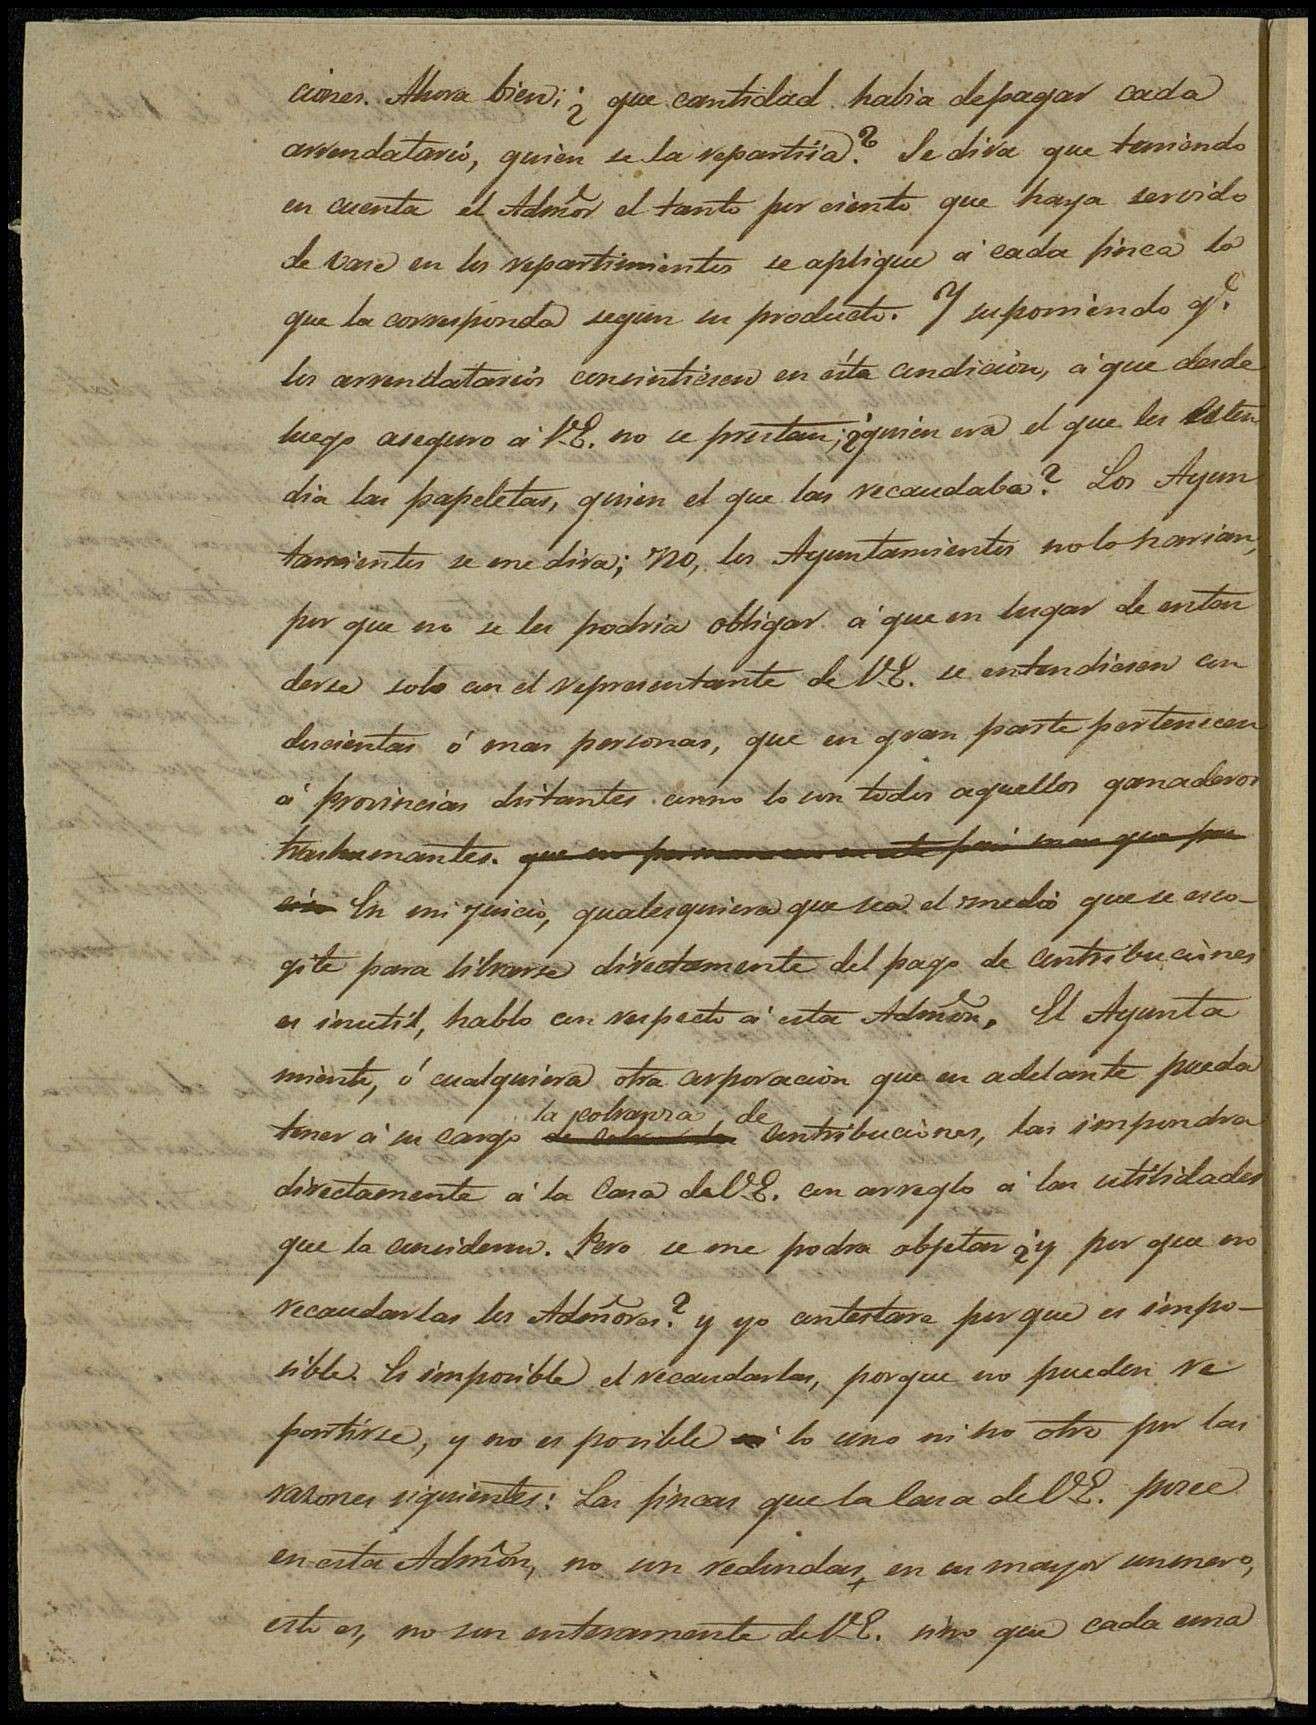 ciones. Ahora bien; ¿ que cantidad habia depagar cada
arrendatario, quien se la repartiria? Se dira que teniendo
en cuenta el Admõr el tanto por ciento que haya servido
de vase en los repartimientos se aplique á cada finca lo
que la corresponda segun su producto. Y suponiendo q.e
los arrendatarios consintiesen en ésta condicion, á que desde
luego aseguro á V.E. no se prestan; ¿quien era el que les esten
dia las papeletas, quien el que las recaudaba? Los Ayun
tamientos se me dira; no, los Ayuntamientos nolo harian,
por que no se les podria obligar á que en lugar de enten
derse solo con el representante de V.E. se entendiesen con
doscientas ó mas personas, que en gran parte pertenecen
á provincias distantes como lo son todos aquellos ganaderos
trashumantes. que no permanecen en este pais mas que pre
ciso En mi juicio, qualesquiera que sea el medio que se esco-
gite para librarse directamente del pago de contribuciones
es inutil, hablo con respecto á esta Admõn. El Ayunta
miento, ó cualquiera otra corporacion que en adelante pueda
tener á su cargo la cobranza de contribuciones, las impondra
directamente á la Casa de V.E. con arreglo á las utilidades
que la consideren. Pero se me podra objetar ¿y por que no
recaudarlas los Admõres? y yo contestare porque es impo-
sible. Es imposible el recaudarlas, porque no pueden re
partirse, y no es posible ni lo uno ni lo otro por las
razones siguientes: Las fincas que la Casa de V.E. posee
en esta Admõn, no son redondas, en su mayor numero,
esto es, no son enteramente de V.E. sino que cada una